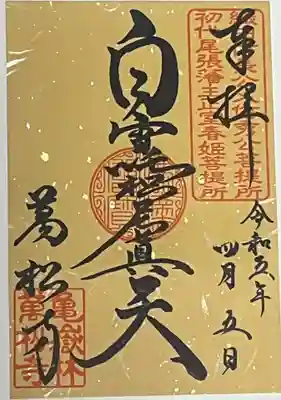 奉拝
初代尾張藩主正室春姫菩提所
令和五年
四月五日
白雪稲荷眞天
萬松寺
亀嶽林
萬松寺